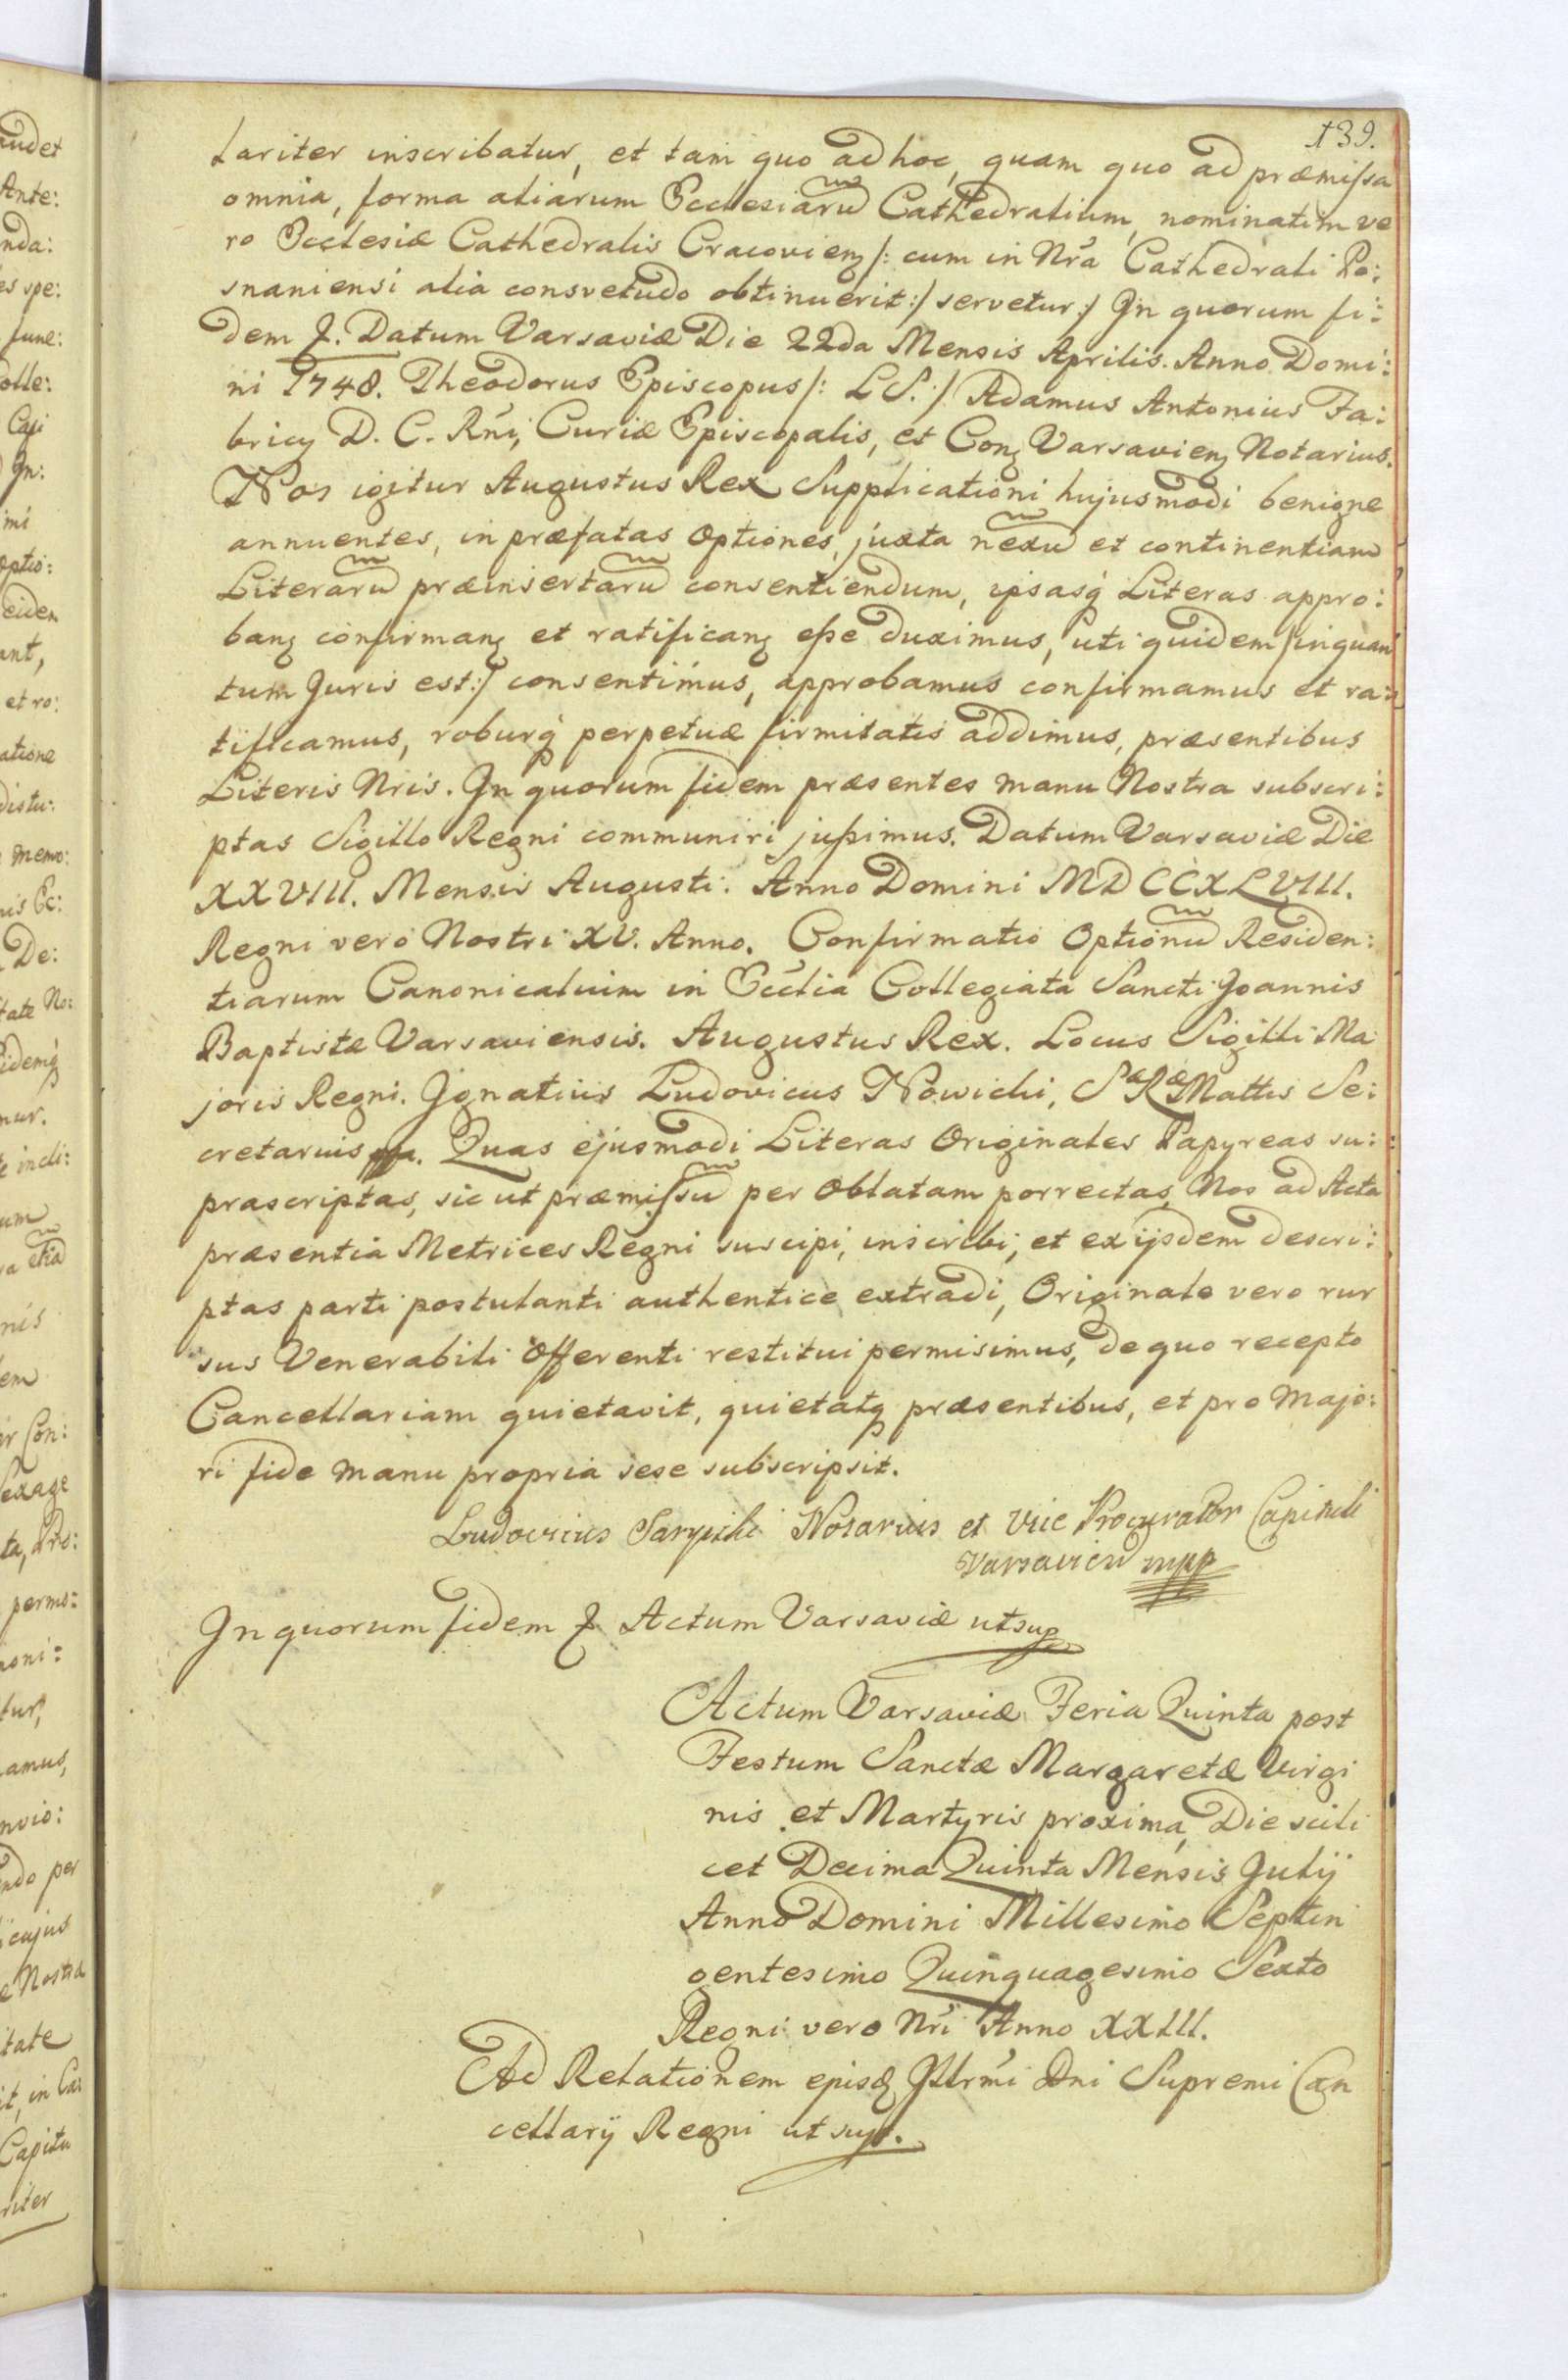 139.
tariter inscribatur, et tam quo ad hoc, quam quo ad præmissa
omnia, forma aliarum Ecclesiaru Cathedralium, nominatim ve
ro Ecclesiæ Cathedralis Cracovien /: cum in Nra Cathedrali Po:
snaniensi alia consvetudo obtinuerit :/ servetur :/ In quorum fi:
dem &. Datum Varsaviæ Die 22da Mensis Aprilis. Anno Domi:
ni 1748. Theodorus Episcopus /: L S. :/ Adamus Antonius Fa:
bricy D. C. Rni, Curiæ Episcopalis, et Con Varsavien Notarius.
Nos igitur Augustus Rex Supplicationi hujusmodi benigne
annuentes, in præfatas Optiones, juxta nexu et continentiam
Literaru præinsertaru consentiendum, ipsasq Literas appro:
ban confirman et ratifican esse duximus, uti quidem /inquan
tum Juris est :/ consentimus, approbamus confirmamus et ra:
tificamus, roburq perpetuæ firmitatis addimus, præsentibus
Literis Nris. In quorum fidem præsentes manu Nostra subscri:
ptas Sigillo Regni communiri jussimus. Datum Varsaviæ Die
XXVIII. Mensis Augusti. Anno Domini MDCCXLVIII.
Regni vero Nostri XV. Anno. Confirmatio Optionu Residen:
tiarum Canonicalium in Ecclia Collegiata Sancti Joannis
Baptistæ Varsaviensis. Augustus Rex. Locus Sigilli Ma
joris Regni. Ignatius Ludovicus Nowicki, SæRæMattis Se:
cretarius. Quas ejusmodi Literas Originales Papyreas su:
prascriptas, sic ut præmissu per Oblatam porrectas, Nos ad Acta
præsentia Metrices Regni suscipi, inscribi, et ex ijsdem descri:
ptas parti postulanti authentice extradi, Originale vero rur
sus Venerabili Offerenti restitui permisimus, de quo recepto
Cancellariam quietavit, quietatq præsentibus, et pro majo:
ri fide manu propria sese subscripsit.
Ludovicus Notarius et Vice Procurator Capituli
Varsavien mpp
In quorum fidem & Actum Varsaviæ ut sup
Actum Varsaviæ Feria Quinta post
Festum Sanctæ Margaretæ Virgi
nis et Martyris proxima, Die scili
cet Decima Quinta Mensis Julij
Anno Domini Millesimo Septin
gentesimo Quinquagesimo Sexto
Regni vero Nri Anno XXIII.
Ad Relationem ejusd Illrmi Dni Supremi Can
cellarij Regni ut sup.